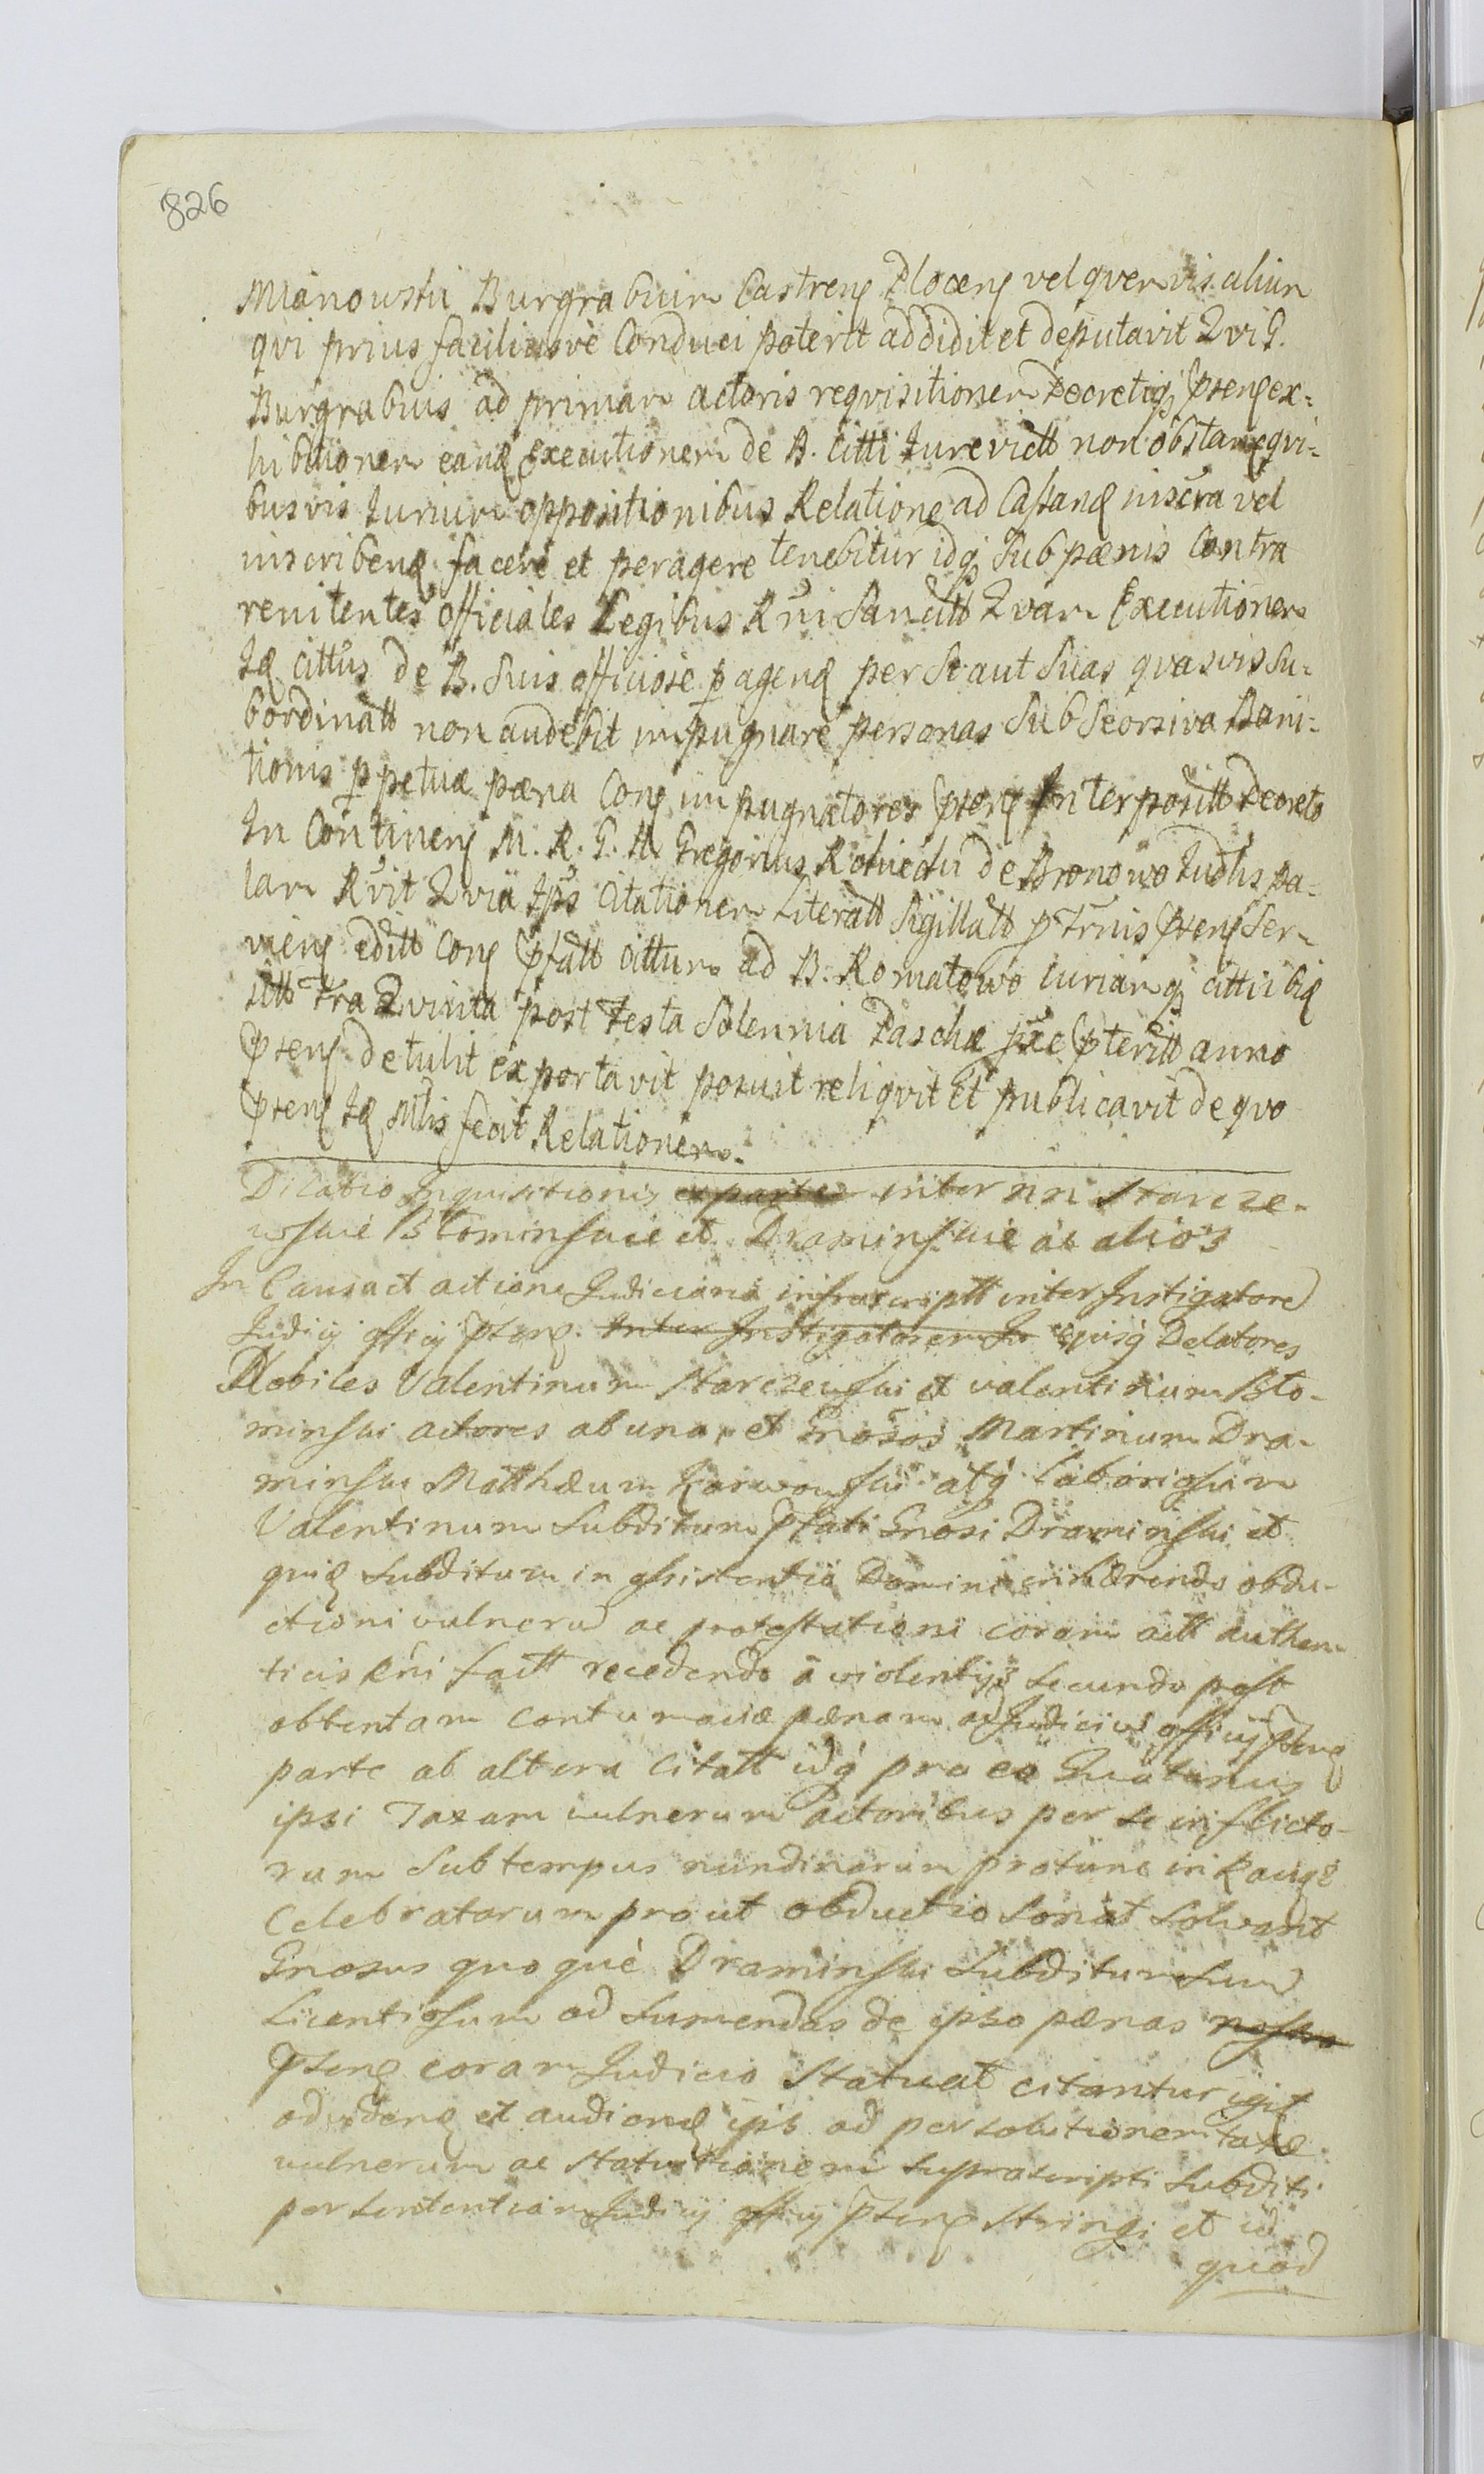 826
Mianowski Burgrabium Castrens Plocens vel quemvis alium
qvi prius faciliusvè Conduci poterit addidit et deputavit Qvi G.
Burgrabius ad primam actoris reqvisitionem Decretiq; pnsens ex-
hibitionem eand Executionem de B. citti Jurevictt non obstanq qvi-
busvis Jurium oppositionibus Relatione ad Cassand inscra vel
inscribend facere et peragere tenebitur idq; Sub pænis Contra
renitentes officiales Legibus Rni Sancitt Qvam Executionem
Id cittus de B. Suis officiose p agend per Se aut Suas qvasvis Su-
bordinatt non audebit impugnare personas Sub Seorsiva Bani-
tionis p petuæ pæna Cons impugnatores pnsens Interpositt Decreto
In Continens M. R. G. H. Gregorius Rokicki de Bronowo Judlis pa-
lam Rvit Qvia Ips Citationem Literatt Sigillatt p Trnis pnsens Ser-
viens editt Cons pfatt cittum ad B. Romatowo curiamq; citti ibid
sitt Fra Qvinta post Festa Solennia Paschæ pxe pteritt anno
pnsens detulit exportavit posuit reliqvit et publicavit de qvo
pnsens Id Mlis fecit Relationem.
Dilatio Inquisitionis ex parte inter nn Starcze-
wskie Blominskie et Draminskie ac alios
In Causa et actione Judiciaria infrascriptt inter Instigatore
Judicij officij pnsens. Inter Instigatorem Ju ejusq Delatores
Nobiles Valentinum Starczewski et valentinum Blo-
minski actores ab una, et Gnosos Martinum Dra-
minski Matthæum Karwowski atq Laboriosum
Valentinum Subditum pfati Gnosi Draminski et
quid Subditum in assistentia Domini inhærendo obdu-
ctioni vulneru ac protestationi coram actt authen-
ticis Rni factt recedendo a violentijs Secundo post
obtentam contumaciæ pænam ad Judiciu officij pnsens
parte ab altera Citatt idq pro eo Quatenus
ipsi Taxam vulnerum actoribus per se inflicto-
rum Sub tempus nundinarum protunc in Raciąż
Celebratarum prout obductio Sonat Solvant
Gnosus quoquè Draminski Subditum Suu
Licentiosum ad Sumendas de ipso pænas
pnsens coram Judicio Statuat citantur igit
ad vdend et audiend ipis ad persolutionem taxæ
vulnerum ac Statuitionem Suprascripti Subditi
per Sententiam Judicij officij pnsens Stringi et id
quod